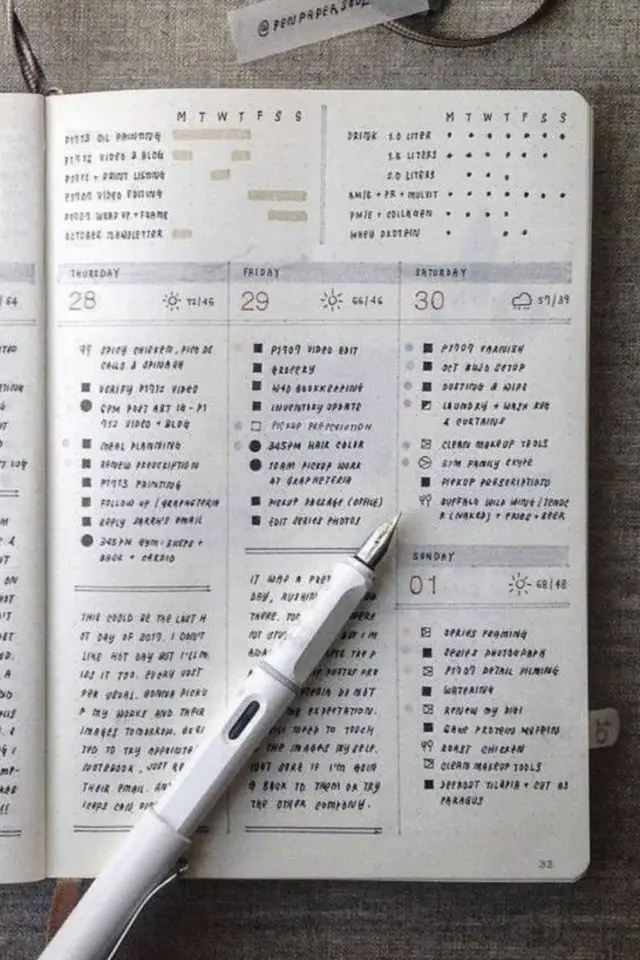 @PENPAPERSOUL
M T W T F S S
P1713 OIL PAINTING
P1712 VIDEO & BLOG
PRINT LISTING
P1709 VIDEO EDITING
P1709 WRAP UP + FRAME
OCTOBER NEWSLETTER
M T W T F S S
DRINK 1.0 LITER
1.5 LITERS
2.0 LITERS
AM/E + PR + MULVIT
PM/E + COLLAGEN
WHEY PROTEIN
/64
THURSDAY
28
72/45
SPICY CHICKEN, PICO DE
GALLO & SPINACH
VERIFY P1712 VIDEO
6PM POST ART IG - P1
712 VIDEO + BLOG
MEAL PLANNING
RENEW PRESCRIPTION
P1713 PAINTING
FOLLOW UP / GRAPHETERIA
REPLY SARAH'S EMAIL
345PM GYM: BICEPS +
BACK + CARDIO
THIS COULD BE THE LAST H
OT DAY OF 2017. I DON'T
LIKE HOT DAY BUT I'LL M
ISS IT TOO. EVERY JUST
PER USUAL. GONNA PICKU
P MY WORKS AND THEIR
IMAGES TOMORROW.
TED TO TRY APPOINTE
NOTEBOOK, JUST RE
THEIR EMAIL.
FRIDAY
29
66/46
P1709 VIDEO EDIT
GROCERY
W40 BOOKKEEPING
INVENTORY UPDATE
PICKUP PRESCRIPTION
345PM HAIR COLOR
10AM PICKUP WORK
AT GRAPHETERIA
PICKUP PACKAGE (OFFICE)
EDIT SERIES PHOTOS
IT WAS A
DAY,
THERE.
BUT I'M
DO NOT
MY EXPECTATION.
NEED TO TOUCH
THE IMAGES MYSELF.
NOT SURE IF I'M GOIN
G BACK TO THEM OR TRY
THE OTHER COMPANY.
SATURDAY
30
57/39
P1709 VARNISH
OCT BUJO SETUP
DUSTING & WIPE
LAUNDRY + WASH RUG
& CURTAINS
CLEAN MAKEUP TOOLS
8PM FAMILY SKYPE
PICKUP PRESCRIPTION
BUFFALO WILD WING/TENDE
R (NAKED) + FRIES + BEER
SUNDAY
01
68/48
SERIES FRAMING
SERIES PHOTOGRAPH
P1709 DETAIL FILMING
WATERING
RENEW MY DIGI
BAKE PROTEIN MUFFINS
ROAST CHICKEN
CLEAN MAKEUP TOOLS
DEFROST TILAPIA + CUT AS
PARAGUS
33